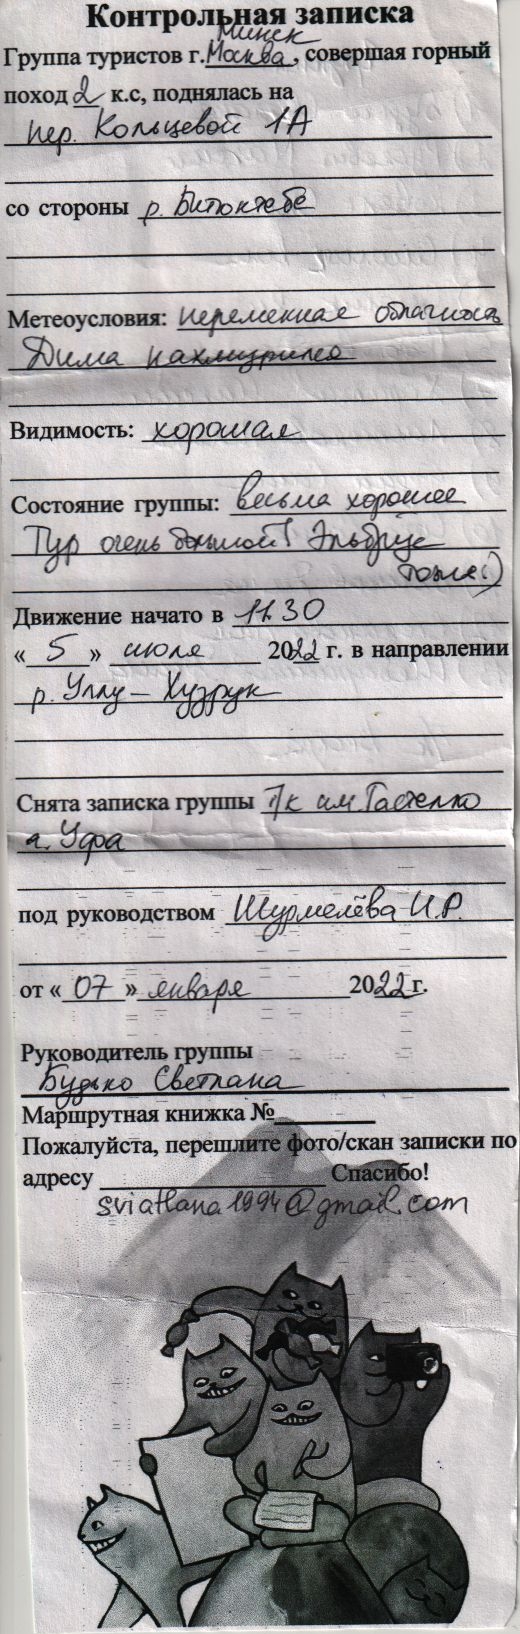 Контрольная записка
Минск
Группа туристов г. Москва, совершая горный
поход 2 к.с, поднялась на
пер. Кольцевой 1А
со стороны р. Битюктебе
Метеоусловия: переменная облачность
Дима нахмурился
Видимость: хорошая
Состояние группы: весьма хорошее
Тур очень большой! Эльбрус
тоже :)
Движение начато в 11.30
«5» июля 2022 г. в направлении
р. Уллу-Хурзук
Снята записка группы т/к им. Гастелло
г. Уфа
под руководством Шурмелёва И.Р.
от «07» января 2022г.
Руководитель группы
Будько Светлана
Маршрутная книжка №
Пожалуйста, перешлите фото/скан записки по
адресу Спасибо!
sviatlana1994@gmail.com